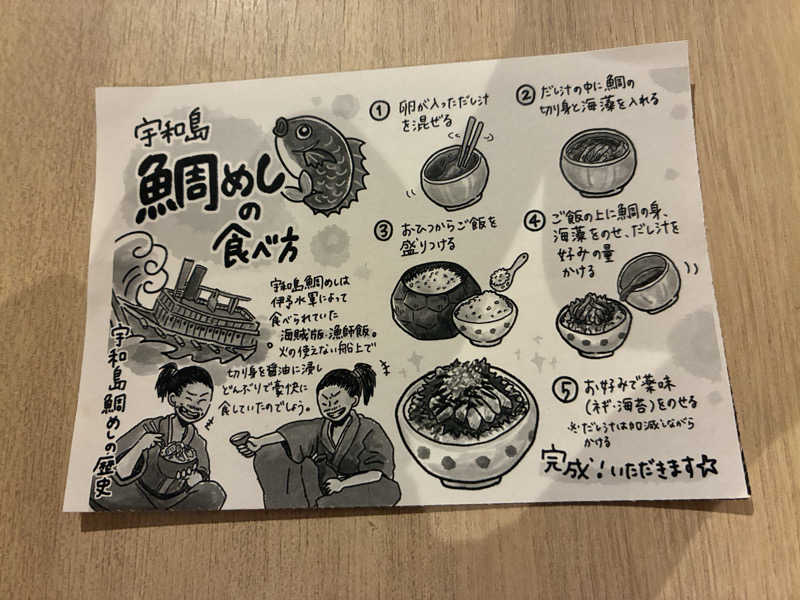 宇和島
鯛めし
の
食べ方
宇和島鯛めしは
伊予水軍によって
食べられていた
海賊版・漁師飯。
火の使えない船上で
切り身を醤油に浸し
どんぶりで豪快に
食していたのでしょう。
宇和島鯛めしの歴史
① 卵が入っただし汁
を混ぜる
② だし汁の中に鯛の
切り身と海藻を入れる
③ おひつからご飯を
盛りつける
④ ご飯の上に鯛の身、
海藻をのせ、だし汁を
好みの量
かける
⑤ お好みで薬味
(ネギ・海苔)をのせる
※だし汁は加減しながら
かける
完成!いただきます☆